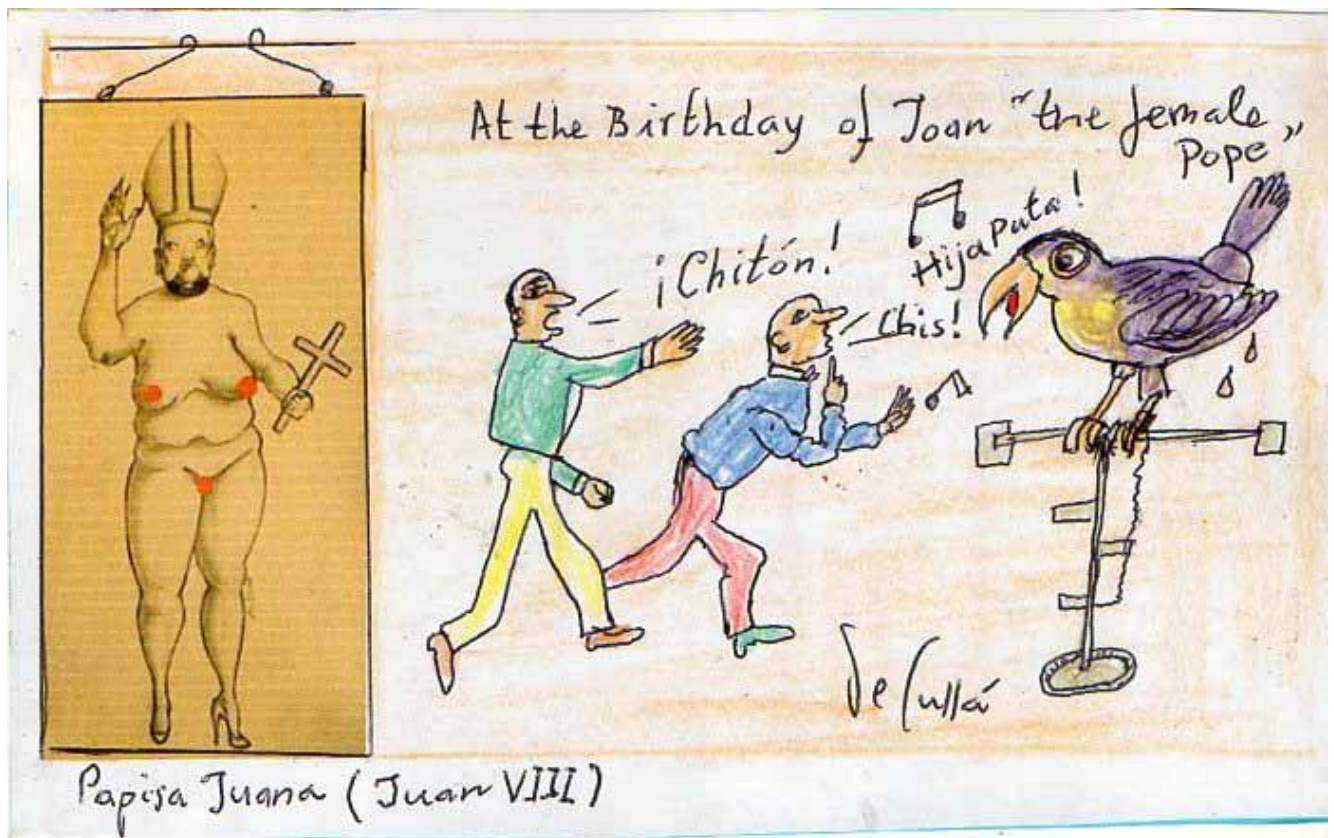 At the Birthday of Joan "the female
Pope"
¡Chitón!
Hijaputa!
Chis!
De Cullá
Papisa Juana (Juan VIII)